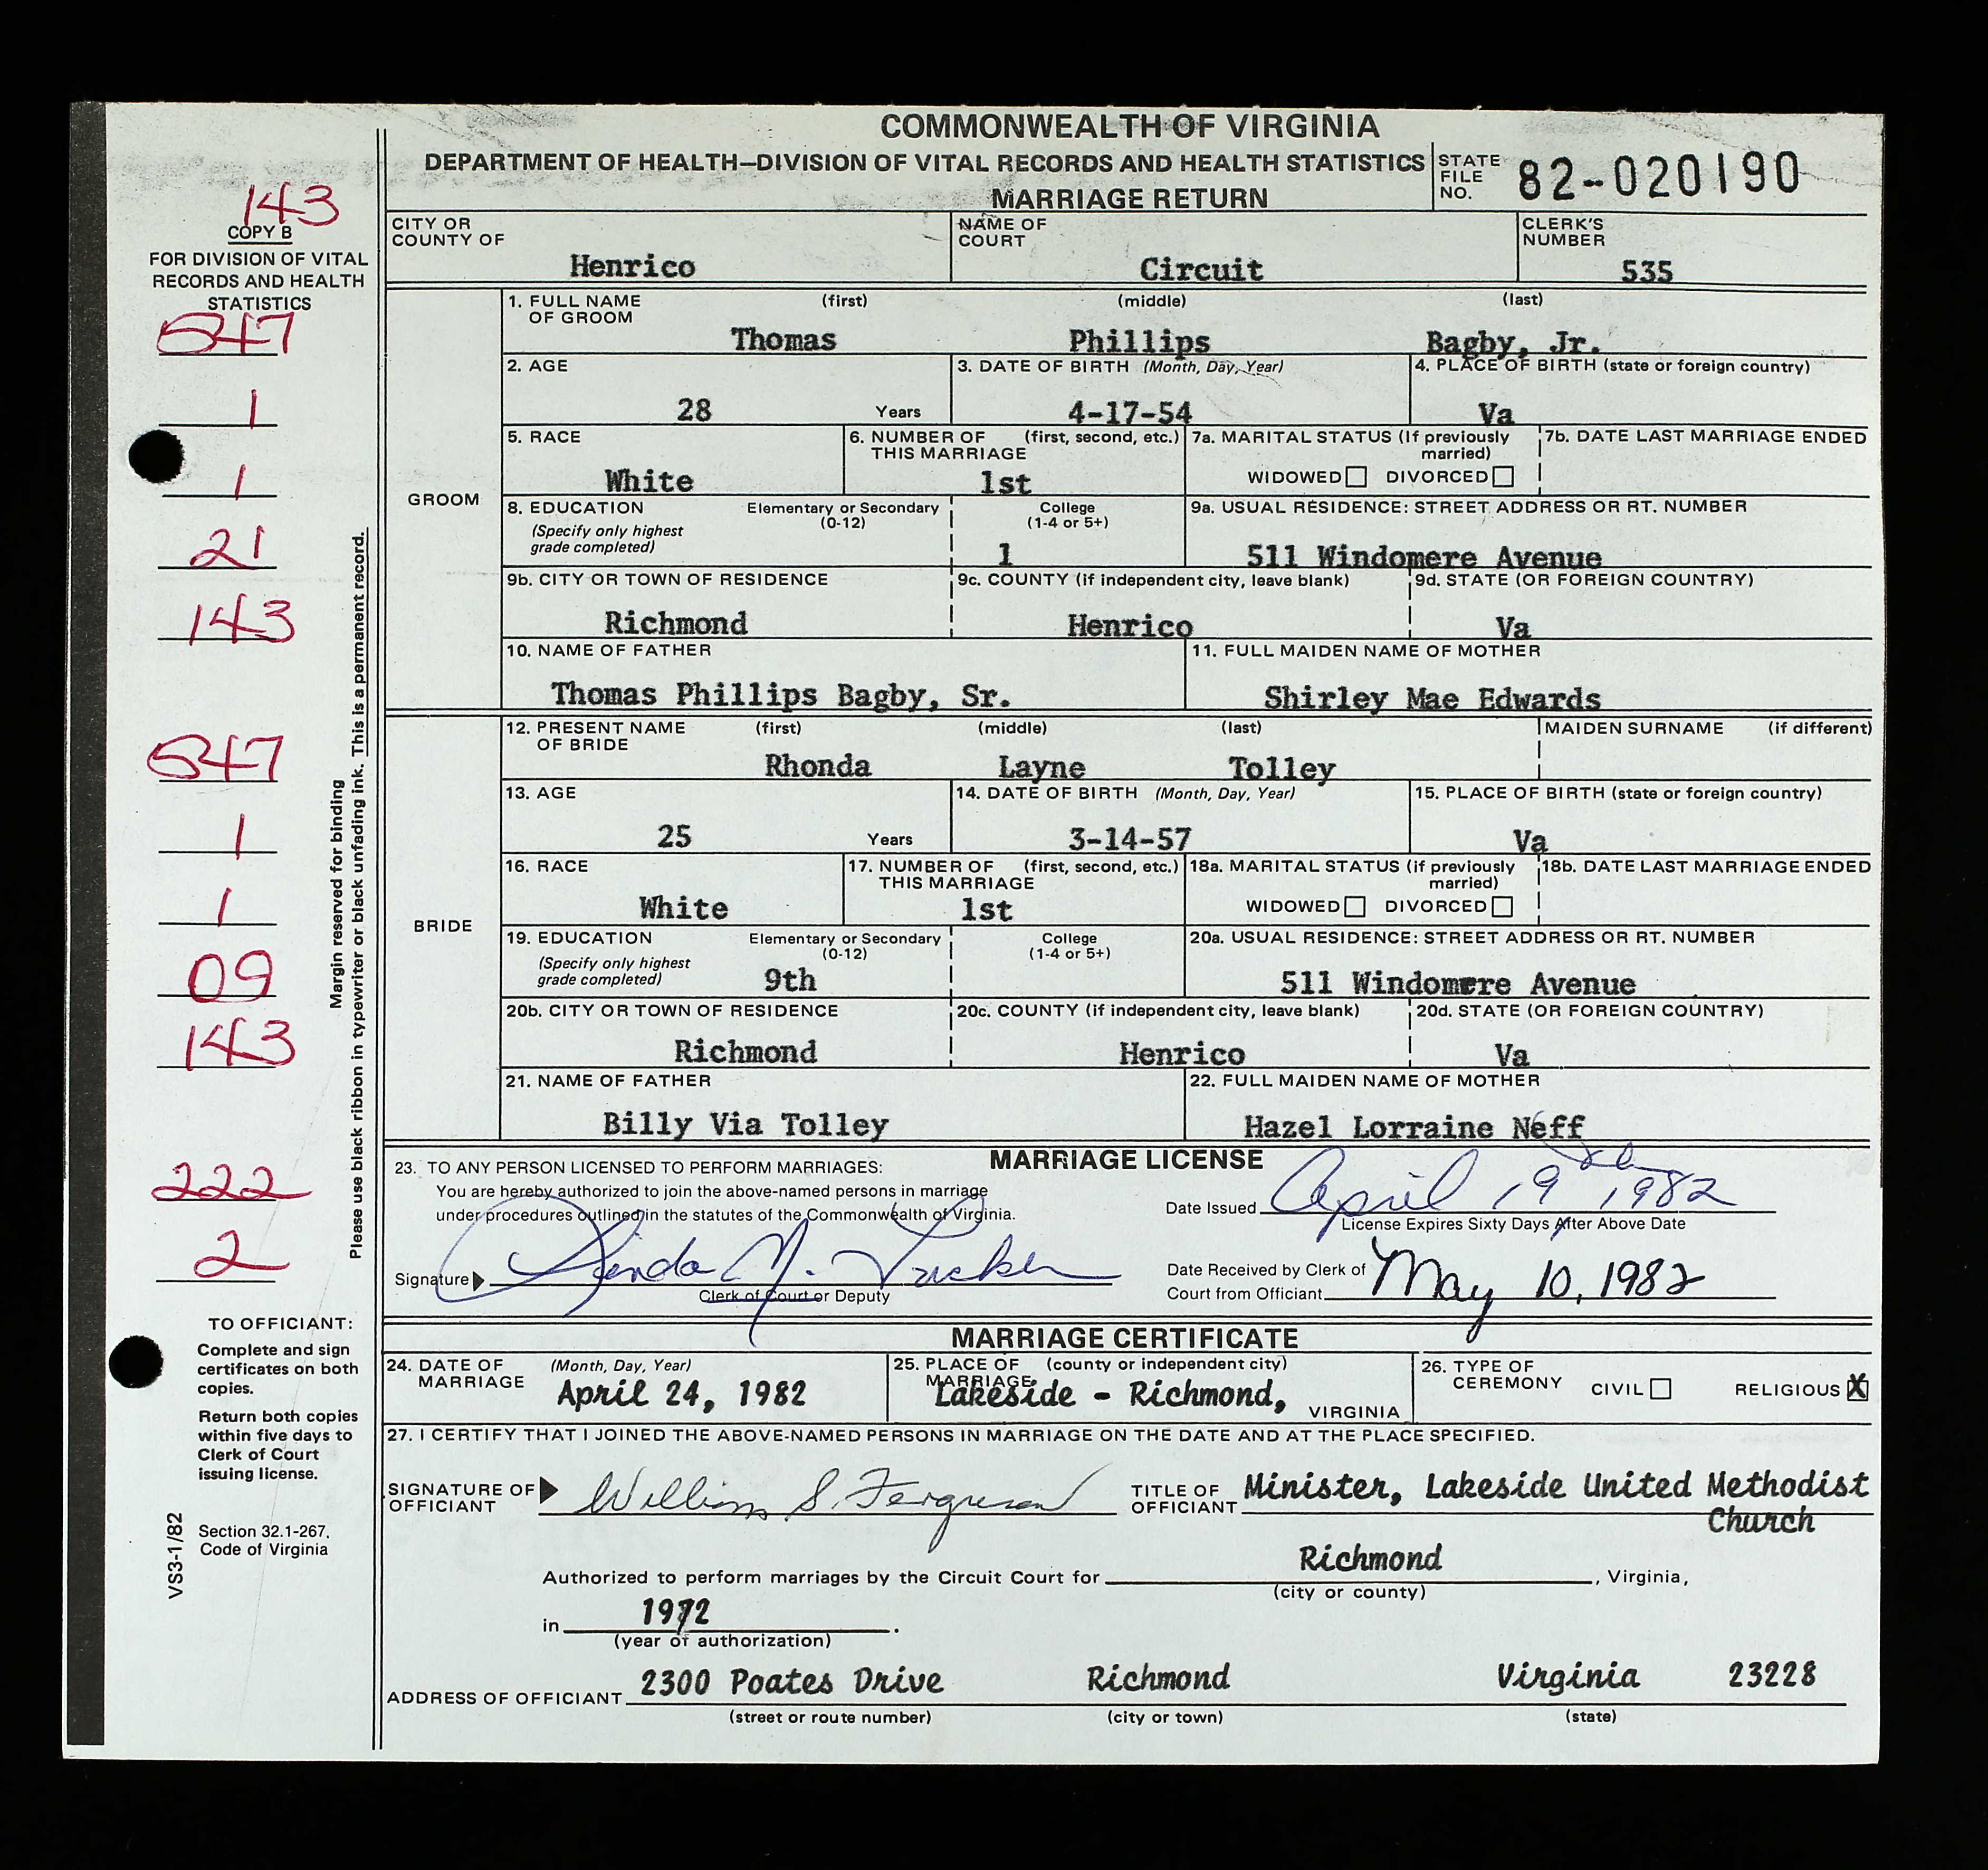 COMMONWEALTH OF VIRGINIA
DEPARTMENT OF HEALTH—DIVISION OF VITAL RECORDS AND HEALTH STATISTICS
MARRIAGE RETURN
STATE FILE NO. 82-020190
143
COPY B
FOR DIVISION OF VITAL
RECORDS AND HEALTH
STATISTICS
547
1
1
21
143
547
1
1
09
143
222
2
Margin reserved for binding
Please use black ribbon in typewriter or black unfading ink. This is a permanent record.
TO OFFICIANT:
Complete and sign
certificates on both
copies.
Return both copies
within five days to
Clerk of Court
issuing license.
Section 32.1-267,
Code of Virginia
VS3-1/82
CITY OR COUNTY OF Henrico
NAME OF COURT Circuit
CLERK'S NUMBER 535
GROOM
1. FULL NAME OF GROOM (first) (middle) (last)
Thomas Phillips Bagby, Jr.
2. AGE 28 Years
3. DATE OF BIRTH (Month, Day, Year) 4-17-54
4. PLACE OF BIRTH (state or foreign country) Va
5. RACE White
6. NUMBER OF THIS MARRIAGE (first, second, etc.) 1st
7a. MARITAL STATUS (If previously married) WIDOWED DIVORCED
7b. DATE LAST MARRIAGE ENDED
8. EDUCATION (Specify only highest grade completed) Elementary or Secondary (0-12) College (1-4 or 5+) 1
9a. USUAL RESIDENCE: STREET ADDRESS OR RT. NUMBER 511 Windomere Avenue
9b. CITY OR TOWN OF RESIDENCE Richmond
9c. COUNTY (if independent city, leave blank) Henrico
9d. STATE (OR FOREIGN COUNTRY) Va
10. NAME OF FATHER Thomas Phillips Bagby, Sr.
11. FULL MAIDEN NAME OF MOTHER Shirley Mae Edwards
BRIDE
12. PRESENT NAME OF BRIDE (first) (middle) (last) MAIDEN SURNAME (if different)
Rhonda Layne Tolley
13. AGE 25 Years
14. DATE OF BIRTH (Month, Day, Year) 3-14-57
15. PLACE OF BIRTH (state or foreign country) Va
16. RACE White
17. NUMBER OF THIS MARRIAGE (first, second, etc.) 1st
18a. MARITAL STATUS (if previously married) WIDOWED DIVORCED
18b. DATE LAST MARRIAGE ENDED
19. EDUCATION (Specify only highest grade completed) Elementary or Secondary (0-12) 9th College (1-4 or 5+)
20a. USUAL RESIDENCE: STREET ADDRESS OR RT. NUMBER 511 Windomere Avenue
20b. CITY OR TOWN OF RESIDENCE Richmond
20c. COUNTY (if independent city, leave blank) Henrico
20d. STATE (OR FOREIGN COUNTRY) Va
21. NAME OF FATHER Billy Via Tolley
22. FULL MAIDEN NAME OF MOTHER Hazel Lorraine Neff
MARRIAGE LICENSE
23. TO ANY PERSON LICENSED TO PERFORM MARRIAGES:
You are hereby authorized to join the above-named persons in marriage
under procedures outlined in the statutes of the Commonwealth of Virginia.
Date Issued April 19th 1982
License Expires Sixty Days After Above Date
Signature Linda N. Tucker
Clerk of Court or Deputy
Date Received by Clerk of Court from Officiant May 10, 1982
MARRIAGE CERTIFICATE
24. DATE OF MARRIAGE (Month, Day, Year) April 24, 1982
25. PLACE OF MARRIAGE (county or independent city) Lakeside - Richmond, VIRGINIA
26. TYPE OF CEREMONY CIVIL RELIGIOUS X
27. I CERTIFY THAT I JOINED THE ABOVE-NAMED PERSONS IN MARRIAGE ON THE DATE AND AT THE PLACE SPECIFIED.
SIGNATURE OF OFFICIANT William S. Ferguson
TITLE OF OFFICIANT Minister, Lakeside United Methodist
Church
Authorized to perform marriages by the Circuit Court for Richmond, Virginia,
(city or county)
in 1972.
(year of authorization)
ADDRESS OF OFFICIANT 2300 Poates Drive Richmond Virginia 23228
(street or route number) (city or town) (state)